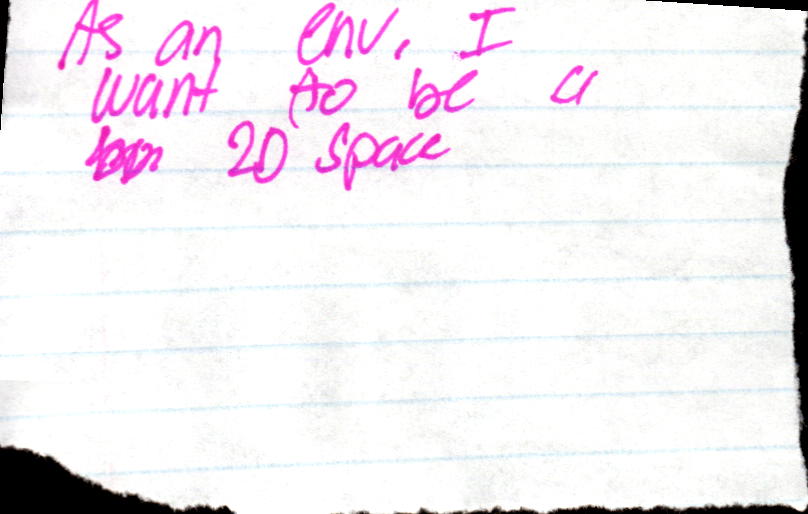 As an env, I
want to be a
2D space